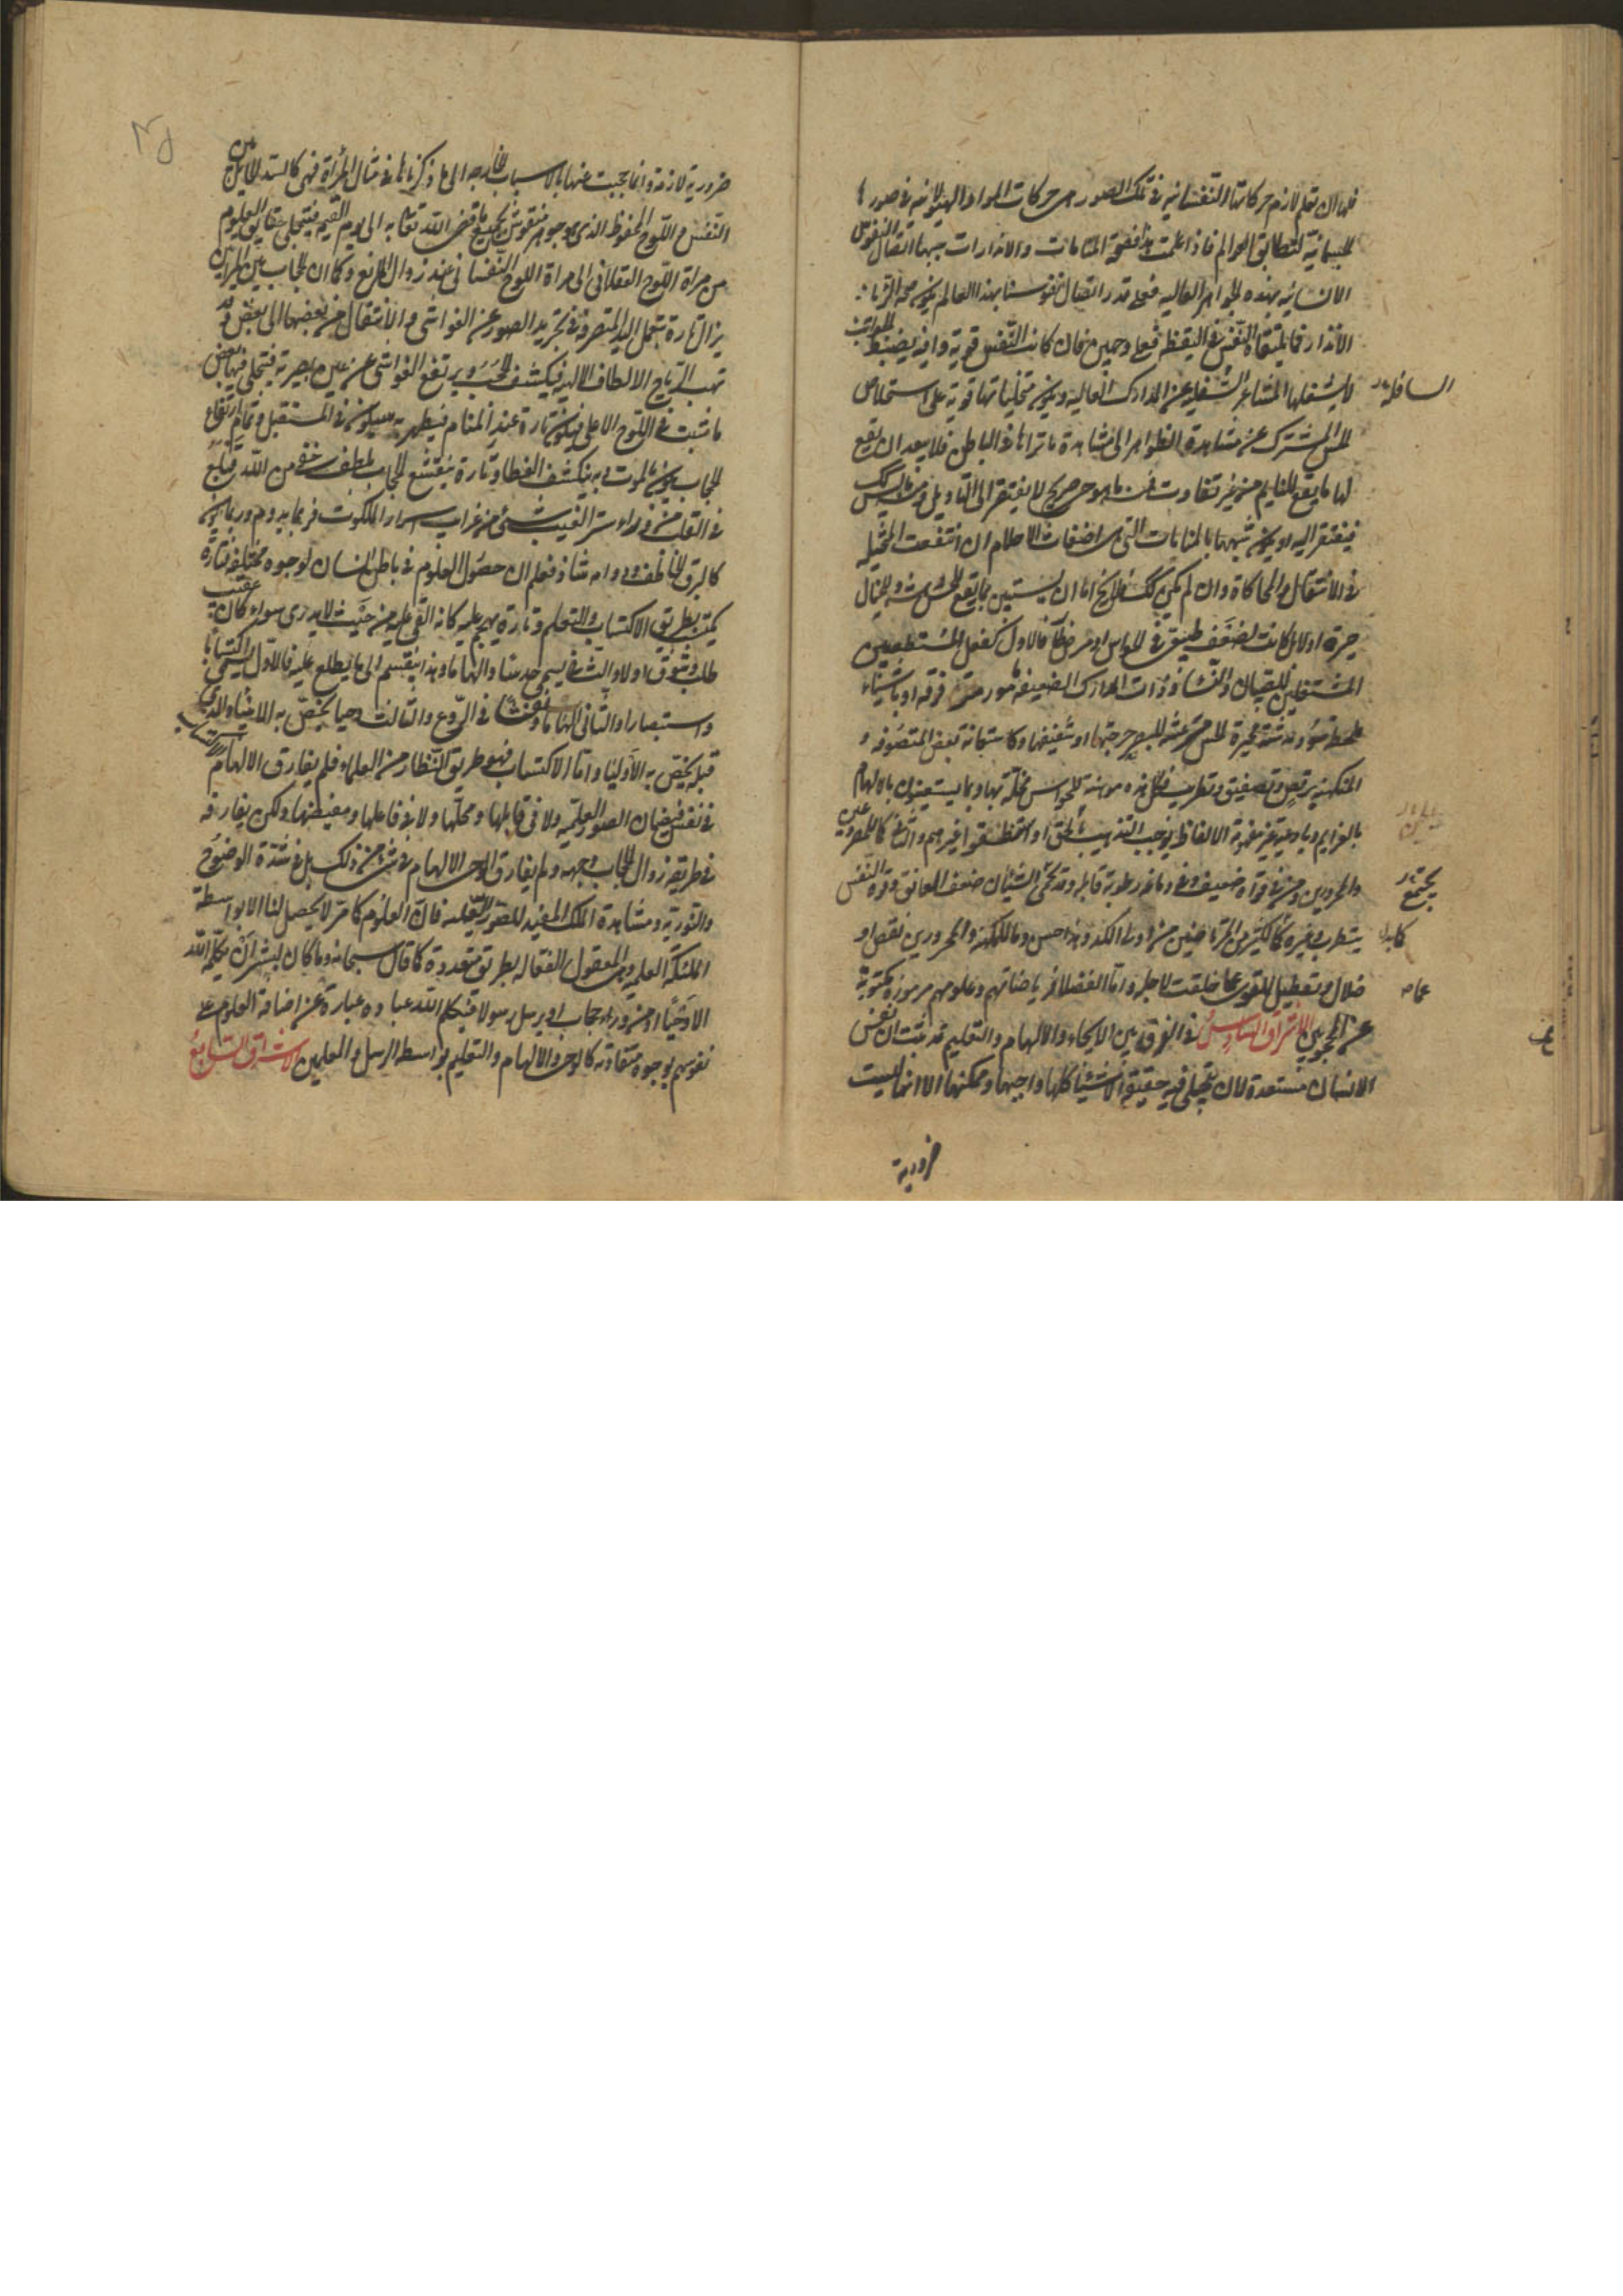 فلها ان تعلم لازم حركاتها النفسانية في تلك الصور من حركات المواد الهيولانية في صورها
الجسمانية لتطابق العوالم فاذا علمت هذا فصحة المنامات والانذارات سببها اتصال النفوس
الانسانية بهذه الجواهر العالية فعلى قدر اتصال نفوسنا بهذا العالم يكون صحة الرؤيا
الانذار فما يتلقاه النفس في اليقظة فعلى وجهين فان كانت النفس قوية وافية بضبط الجوانب
لا يشغلها المشاعر السفلية عن المدارك العالية ويكون متخيلتها قوية على استخلاص
السافلة
الحس المشترك عن مشاهدة الظواهر الى مشاهدة ما تراها في الباطن فلا يبعد ان يقع
لها ما يقع للنايم من غير تفاوت فمنه ما هو وحى صريح لا يفتقر الى التأويل ومنه ما ليس كك
فيفتقر اليه او يكون شبيها بالمنامات التي هى اضغاث الاحلام ان امعنت المتخيلة
في الانتقال والمحاكاة وان لم يكن كك فلا يخ اما ان يستعين بما يقع للحس دهشة وللخيال
حيرة او لا بل كانت لضعف طبيعى في الحواس او مرض طار فالاول كفعل المستنطقين
المشغلين للصبيان والنساء ذوات المدارك الضعيفة بامور مترقرقة او باشياء
ملطخة سود مدهشة محيرة للحس مرعشة للبصر برجرجتها او شفيفها وكاستعانة بعض المتصوفة و
المتكهنة برقص وتصفيق وتطريب فكل هذه موهنة للحواس مخلة بها وربما يستعينون بالابهام
بالعزايم وبادعية غير مفهومة الالفاظ يوجب الترهيب بالجن او استنطقوا غيرهم والثاني كالمصروعين
والممرورين ومن في قواه ضعيف وفي دماغه رطوبة قابلة وقد يجتمع الشيئان ضعف العائق وقوة النفس
يجتمع
بتطريب وغيره كالكثير من المرتاضين من اولى الكد وهذا حسن وما للكهنة والممرورين نقص او
كابدان
ضلال وتعطيل للقوى عما خلقت لاجله واما الفضلاء فرياضاتهم وعلومهم مرموزة مكتومة
عما
عن المحجوبين الاشراق السادس في الفرق بين الايحاء والالهام والتعليم قد ثبت ان نفس
الانسان مستعدة لان يتجلى فيه حقيقة الاشياء كلها واجبها وممكنها الا انها ليست
ضرورية
ضرورية لازمة وانما حجبت عنها بالاسباب الخارجة الى ما ذكرناها في مثال المرآة فهى كالسد الحايل بين
النفس واللوح المحفوظ الذي هو جوهر منقوش بجميع ما قضى الله تعالى به الى يوم القيمة فيتجلى حقايق العلوم
من مرآة اللوح العقلاني الى مرآة اللوح النفساني عند زوال المانع وكما ان الحجاب بين المرآتين
يزال تارة بتعمل اليد المتصرفة في تجريد الصور عن الغواشى والانتقال من بعضها الى بعض وقد
تهب الرياح الالطاف الالهية فيكشف الحجب ويرتفع الغواشى عن عين بصيرته فيتجلى فيها بعض
ما ثبت في اللوح الاعلى فيكون تارة عند المنام فيظهر به ما سيكون في المستقبل وتمام ارتفاع
الحجاب يكون بالموت وبه ينكشف الغطاء وتارة ينقشع الحجاب بلطف خفى من الله فيلمع
في القلب من وراء ستر الغيب شئ من غرايب اسرار الملكوت فربما يدوم وربما يكون
كالبرق الخاطف ودوامه شاذ فعلم ان حصول العلوم في باطن الانسان لوجوه مختلفة فتارة
يكتسب بطريق الاكتساب والتعلم وتارة يهجم عليه كانه القى عليه من حيث لا يدرى سواء كان عقيب
طلب وشوق اولا والثاني يسمى حدسا والهاما وهذا ينقسم الى ما يطلع عليه فالاول يسمى اكتسابا
واستبصارا والثاني الهاما ونفثا في الروع والثالث وحيا يختص به الانبياء والذي
قبله يختص به الاولياء واما الاكتساب فهو طريق النظار من العلماء فلم يفارق الالهام الاكتساب
في نفس فيضان الصور العلمية ولا في قابلها ومحلها ولا في فاعلها ومفيضها ولكن يفارقه
في طريقة زوال الحجاب وجهته ولم يفارق الوحى الالهام في شئ من ذلك بل في شدة الوضوح
والنورية ومشاهدة الملك المفيد للصور العلمية فان العلوم كما مر لا يحصل لنا الا بواسطة
الملئكة العلمية وهى العقول الفعالة بطريق متعددة كما قال سبحانه وما كان لبشر ان يكلمه الله
الا وحيا او من وراء حجاب او يرسل رسولا فتكلم الله عباده عبارة عن اضافة العلوم على
نفوسهم بوجوه متفاوتة كالوحى والالهام والتعليم بواسطة الرسل والمعلمين الاشراق السابع